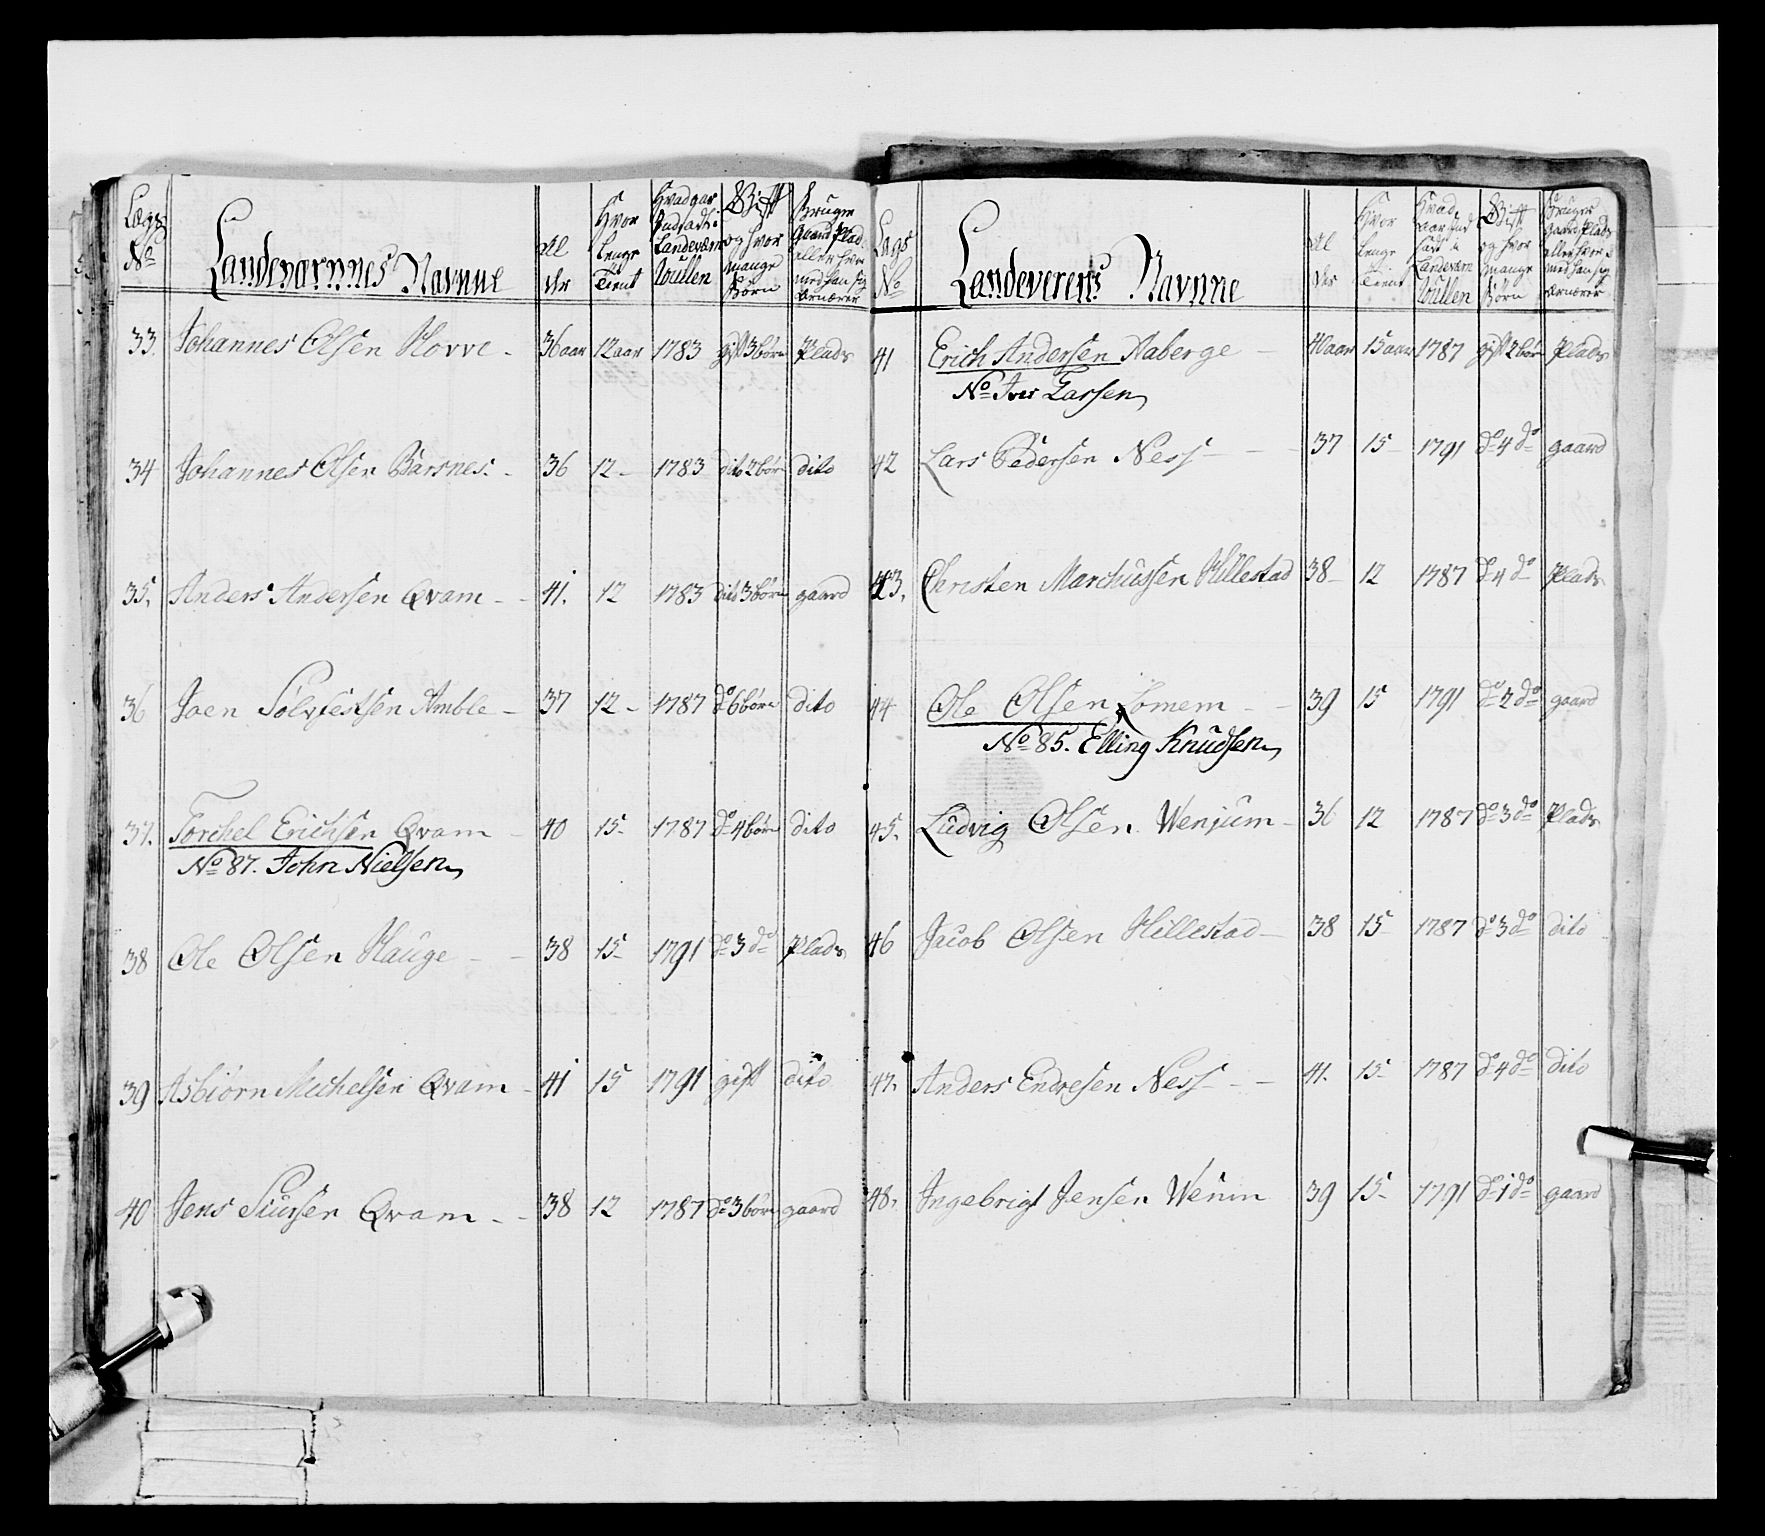 Lægs No
Landeværnnes Navnne
Al der
Hvor lenge Tient
Hvad aar Indsadt i Landeværn Rullen
Gift og hvor mange Børn
Bruger Gaard Plad eller hvor med han sig Ernærer
33. Johannes Olsen Hovve - 36 aar 12 aar 1783 gift 3 børn Plads
34 Johannes Olsen Barsnes - 36 12 - 1783 dito 2 børn dito
35, Anders Andersen Qvam - - 41. 12 1783 dito 3 børn gaard
36 Joen Solvfestsen Amble - 37 12 - 1787 do 6 børn dito
37. Torchel Erichsen Qvam - 40 15 - 1787 do 4 børn dito
No 87. John Nielsen
38 Ole Olsen Hauge - - 38 15 - 1791 do 3 do Plads
39 Asbiørn Michelsen Qvam - 41 15 1791 gift dito
40 Jens Siursen Qvam - - 38 12 1787 do 3 børn gaard
Lægs No
Landeverens Navnne
Al der
Hvor lenge Tient
Hvad aar Ind sadt i Landeværn Rullen
Gift og hvor mange Børn
Bruger Gaard Plads eller hvor med han sig Ernærer
41 Erich Andersen Naberge - 40 aar 15 aar 1787 gift 2 børn Plads
No Iver Larsen
42 Lars Pedersen Ness - - - 37 15 - 1791 do 4 do gaard
43, Christen Marchussen Hillestad 38 - 12 1787 do 4 do Plads
44 Ole Olsen Lomem - - 39 15 1791 do 2 do gaard
No 85. Elling Knudsen
45, Ludvig Olsen Wenjum - 36 12 1787 do 3 do Plads
46 Jacob Olsen Hillestad - 38 15 - 1787 do 3 do dito
47, Anders Endresen Ness - - 41. 15 - 1787 do 4 do dito
48, Ingebrigt Jensen 39 15 - 1791 do 1 do gaard